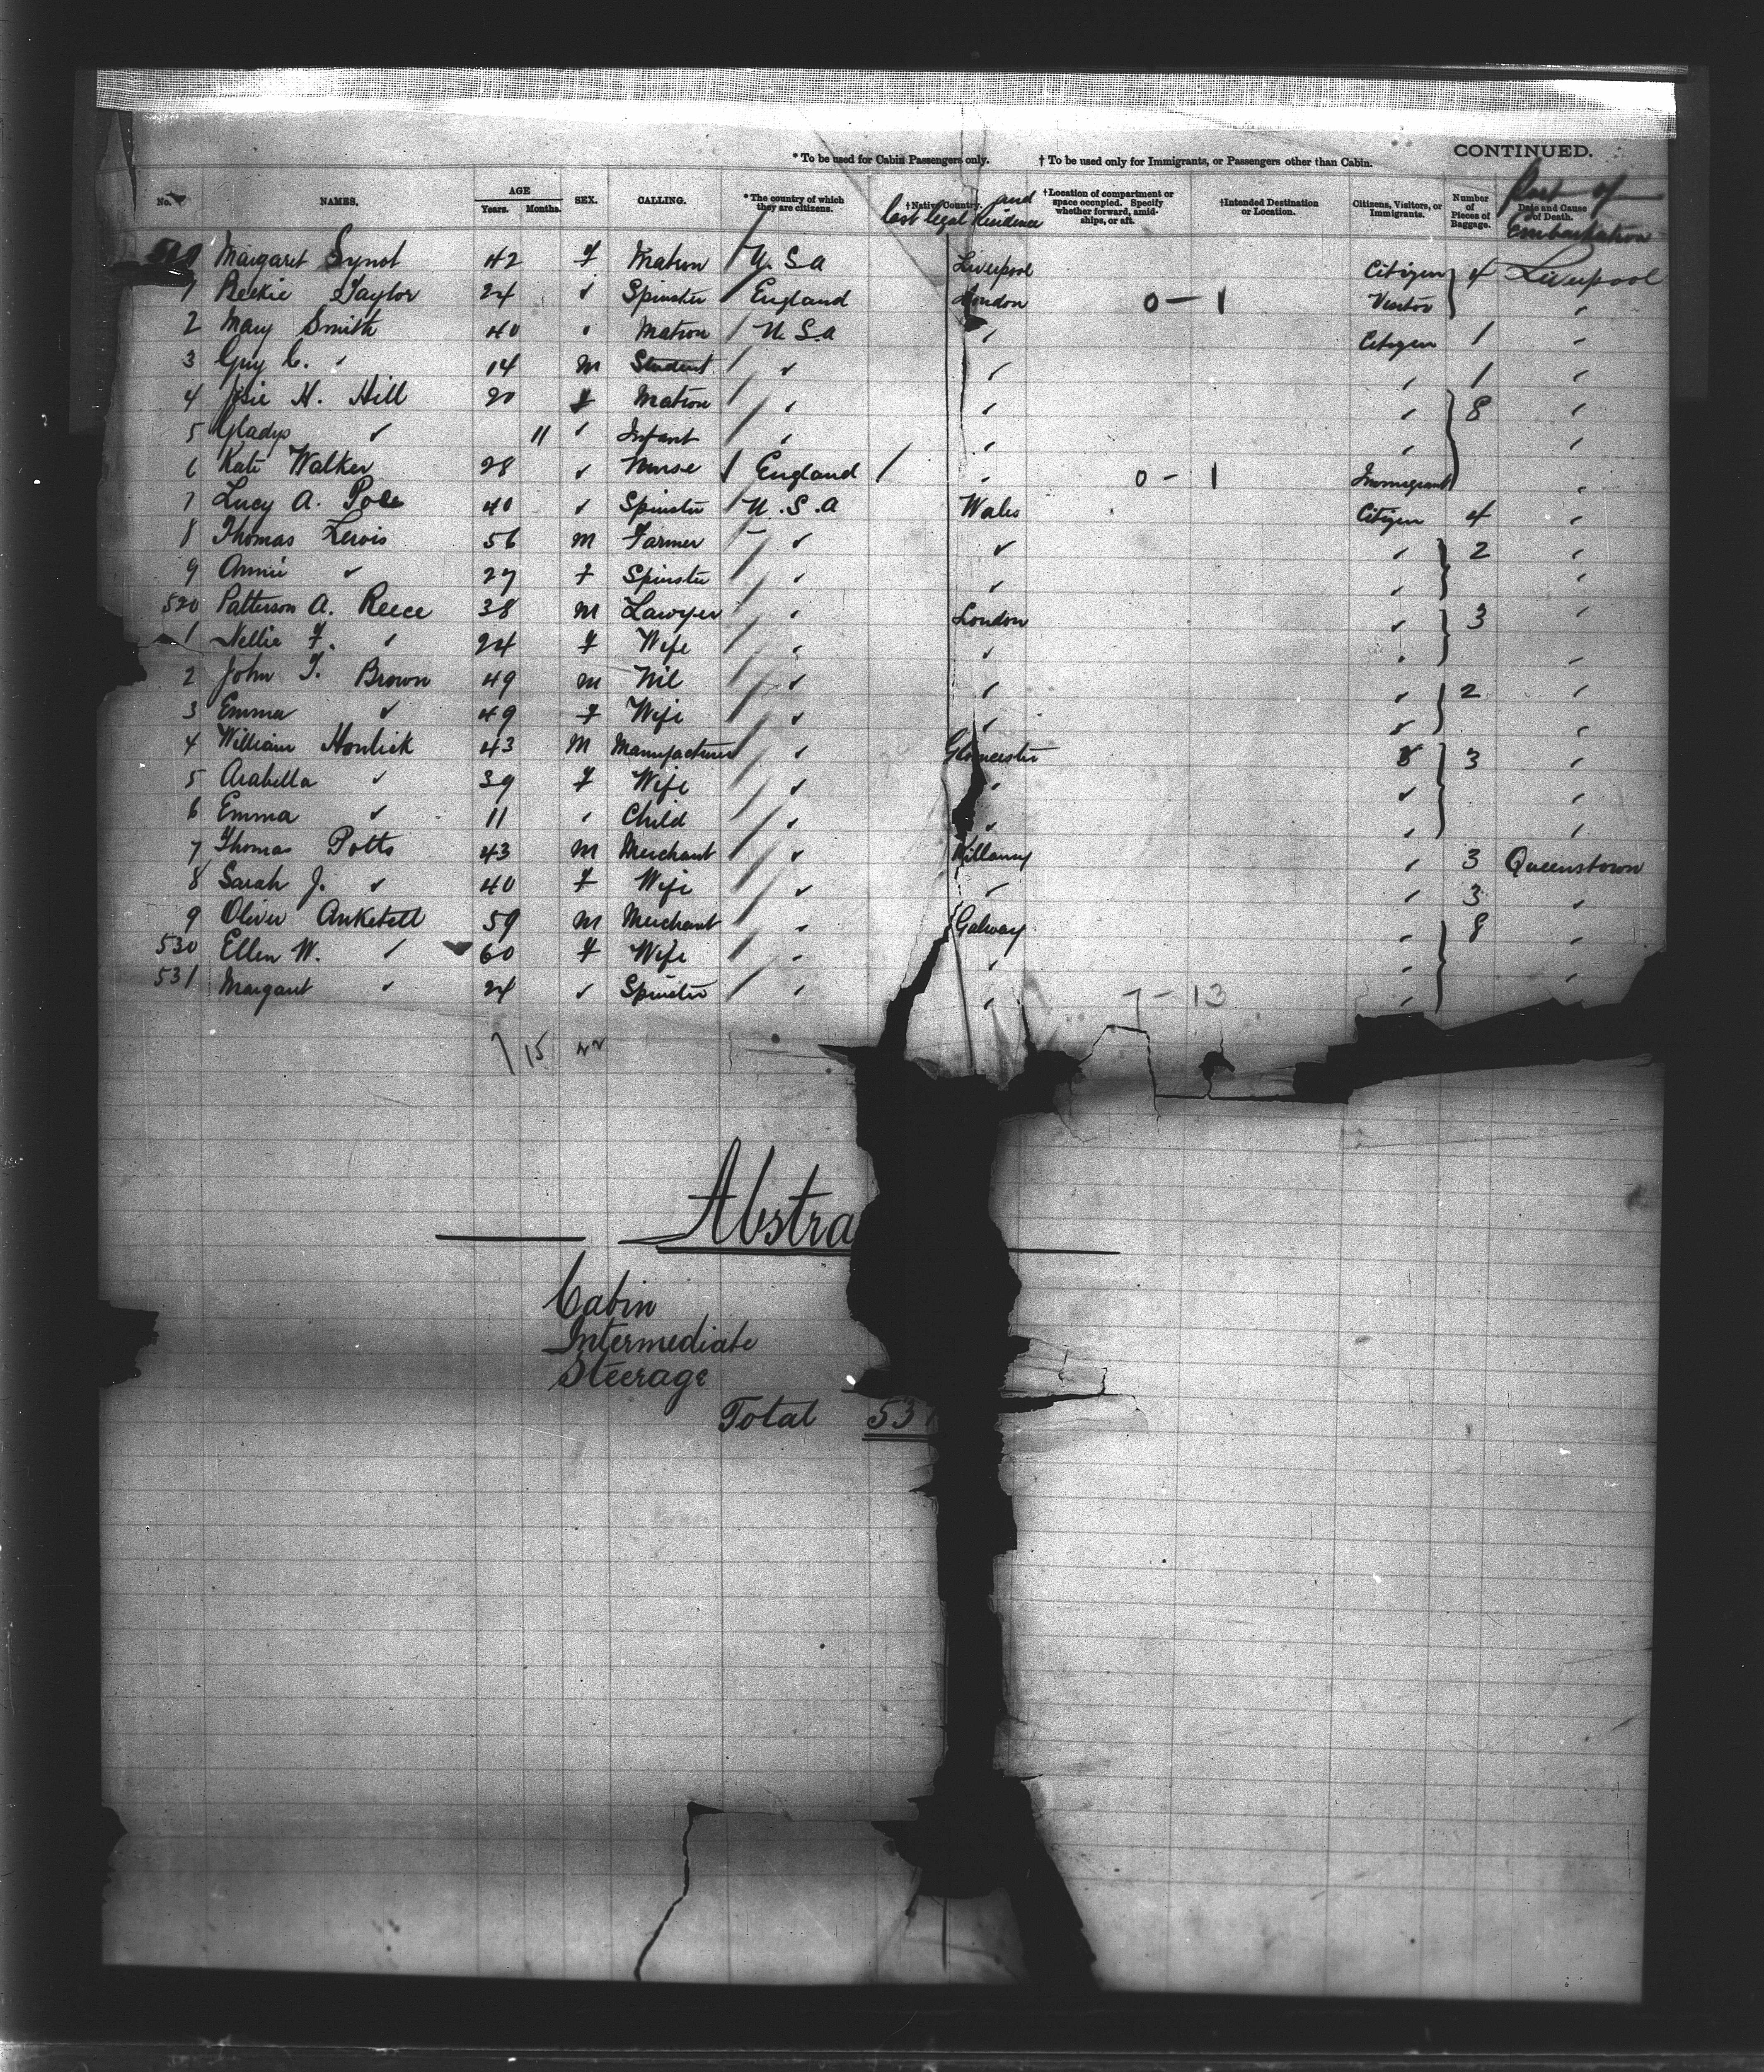 CONTINUED.
* To be used for Cabin Passengers only. † To be used only for Immigrants, or Passengers other than Cabin.
No. NAMES. AGE Years. Months. SEX. CALLING. * The country of which they are citizens. †Native Country. and last legal Residence †Location of compartment or space occupied. Specify whether forward, amidships, or aft. †Intended Destination or Location. Citizens, Visitors, or Immigrants. Number of Pieces of Baggage. Date and Cause of Death. Port of Embarkation
510 Margaret Synot 42 F Matron / U.S.A Liverpool Citizen 4 Liverpool
1 Beekie Taylor 24 ✓ Spinster / England London 0 - 1 Visitor "
2 Mary Smith 40 " Matron / U.S.A " Citizen 1 "
3 Guy C. " 14 M Student / " " " 1 "
4 Josie H. Hill 20 F Matron / " " " 8 "
5 Gladys " 11 " Infant / " " " "
6 Kate Walker 28 " Nurse / England / " 0 - 1 Immigrant "
7 Lucy A. Pole 40 " Spinster / U.S.A Wales Citizen 4 "
8 Thomas Lewis 56 M Farmer / " " " 2 "
9 Annie " 27 F Spinster / " " " "
520 Patterson A. Reece 38 M Lawyer / " London " 3 "
1 Nellie F. " 24 F Wife / " " " "
2 John T. Brown 49 M Nil / " " " 2 "
3 Emma " 49 F Wife / " " " "
4 William Honlick 43 M Manufacturer " Gloucester " 3 "
5 Arabella " 39 F Wife / " " " "
6 Emma " 11 " Child / " " " "
7 Thomas Potts 43 M Merchant / " Killarney " 3 Queenstown
8 Sarah J. " 40 F Wife / " " " 3 "
9 Oliver Anketell 59 M Merchant / " Galway " 8 "
530 Ellen W. " 60 F Wife / " " " "
531 Margaret " 24 " Spinster / " " " "
7 - 13
7 15 22
Abstra
Cabin
Intermediate
Steerage
Total 531